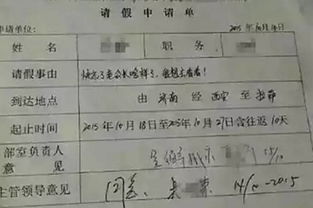 请假申请单
申请单位： 2015年10月14日
姓名 职务
请假事由 快忘了老公长啥样了，我想去看看！
到达地点 由 济南 经 西安 至 拉萨
起止时间 2015年10月18日至2015年10月27日含往返10天
部室负责人
意见 15/10
主管领导意见 同意 14/10-2015